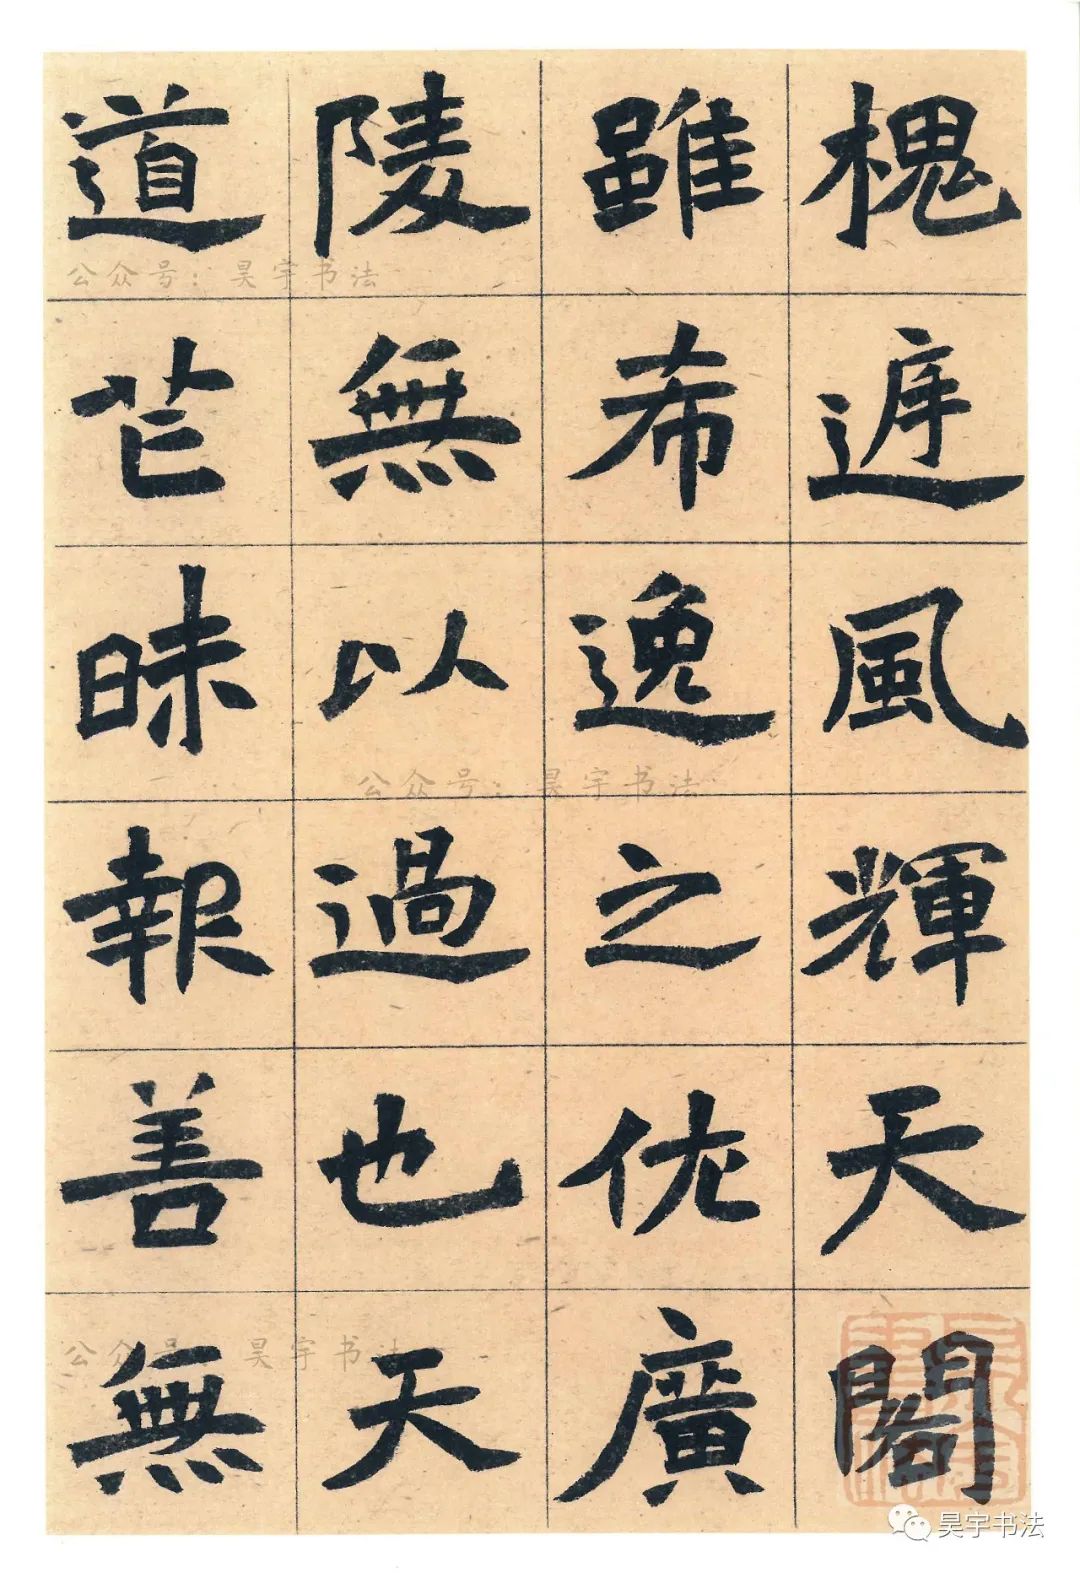 槐風輝天閣
雖希逸之佐廣
陵無以過也天
道芒昧報善無
公众号：昊宇书法
公众号：昊宇书法
公众号：昊宇书法
昊宇书法